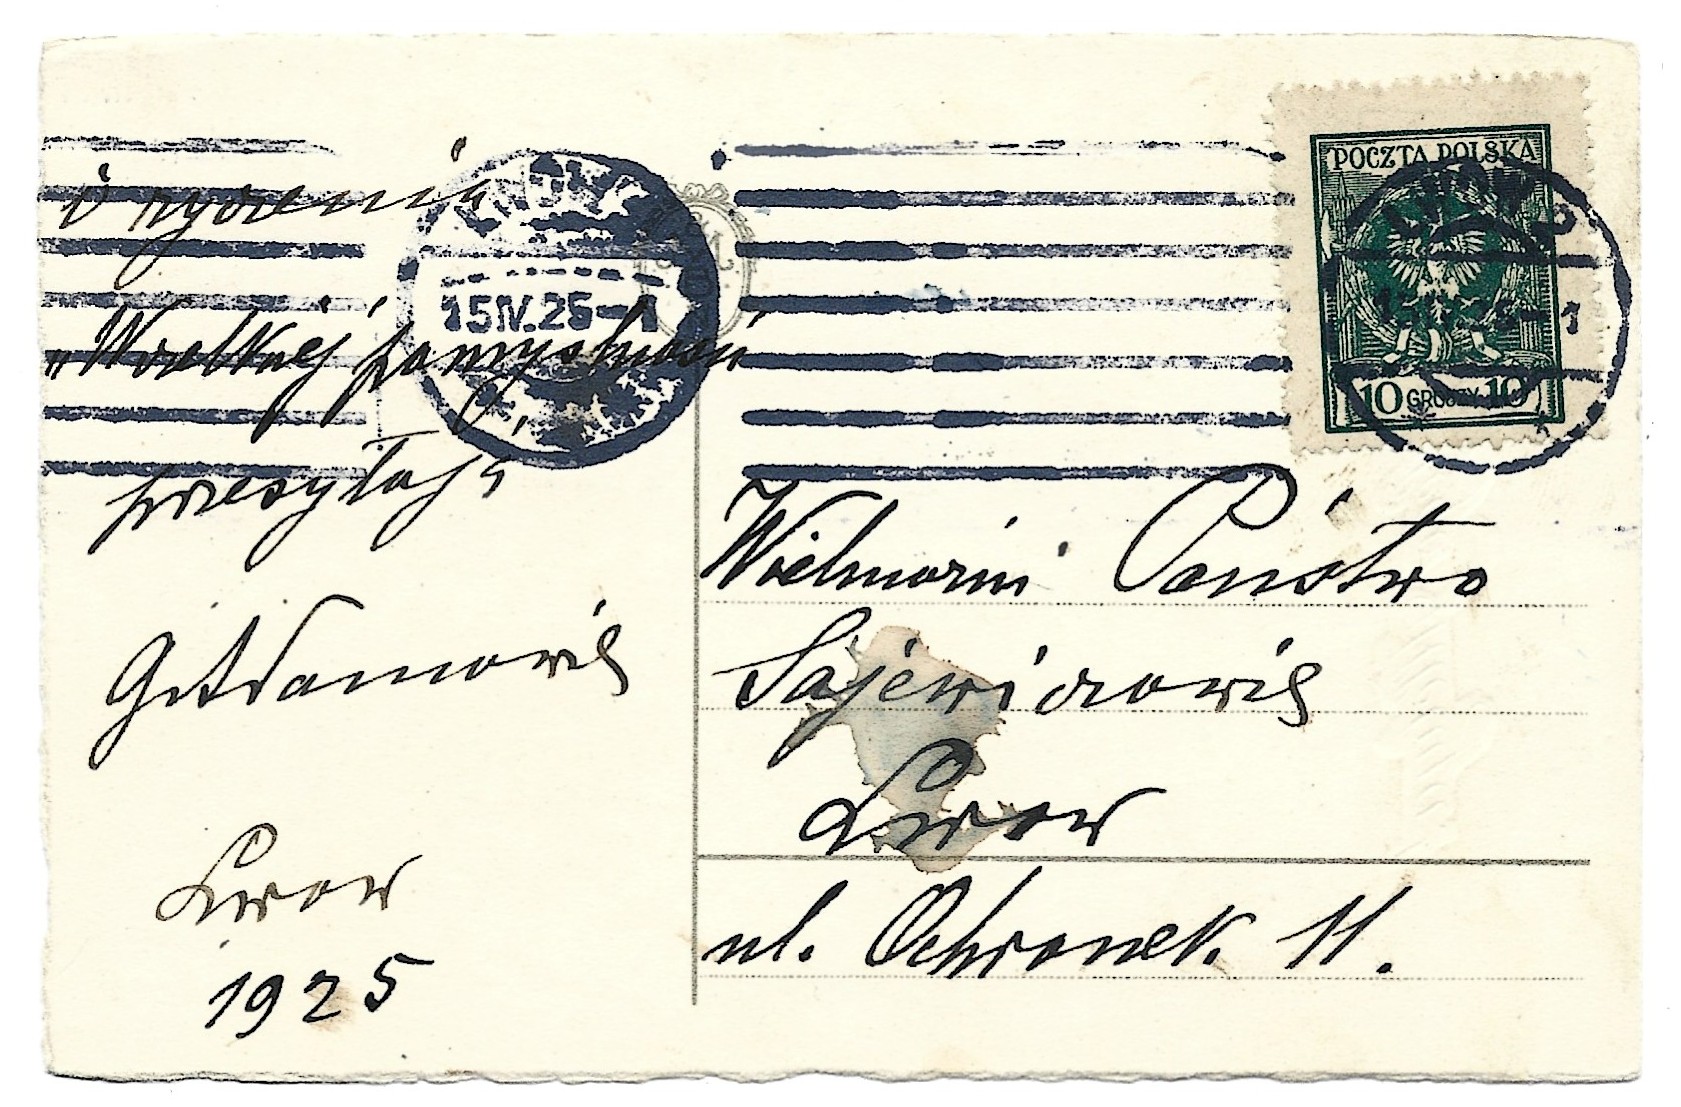 Życzenia
"Wszelkiej pomyślności"
przesyłają
Lwów
1925
POCZTA POLSKA
10 GROSZY 10
15 IV. 25 - 1
Wielmożni Państwo
Sajewiczowie
Lwów
ul. Ochronek 11.